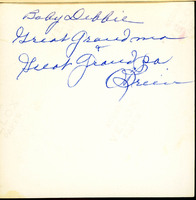 Baby Debbie
Great Grandma
&
Great Grandpa
Green